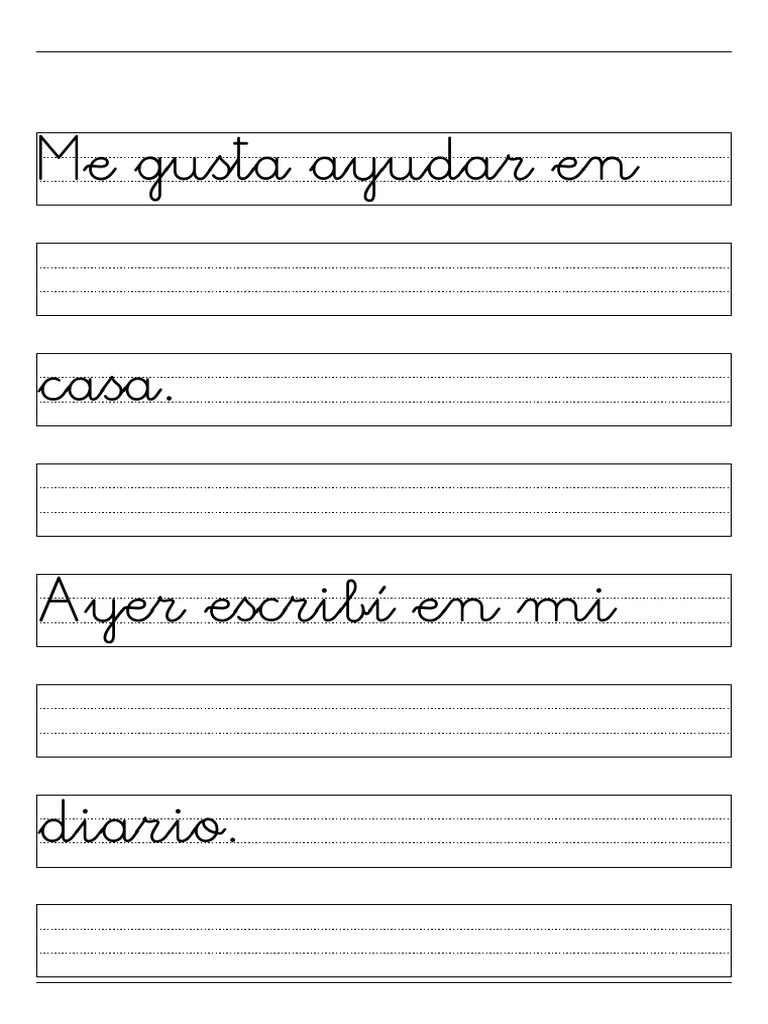 Me gusta ayudar en
casa.
Ayer escribí en mi
diario.